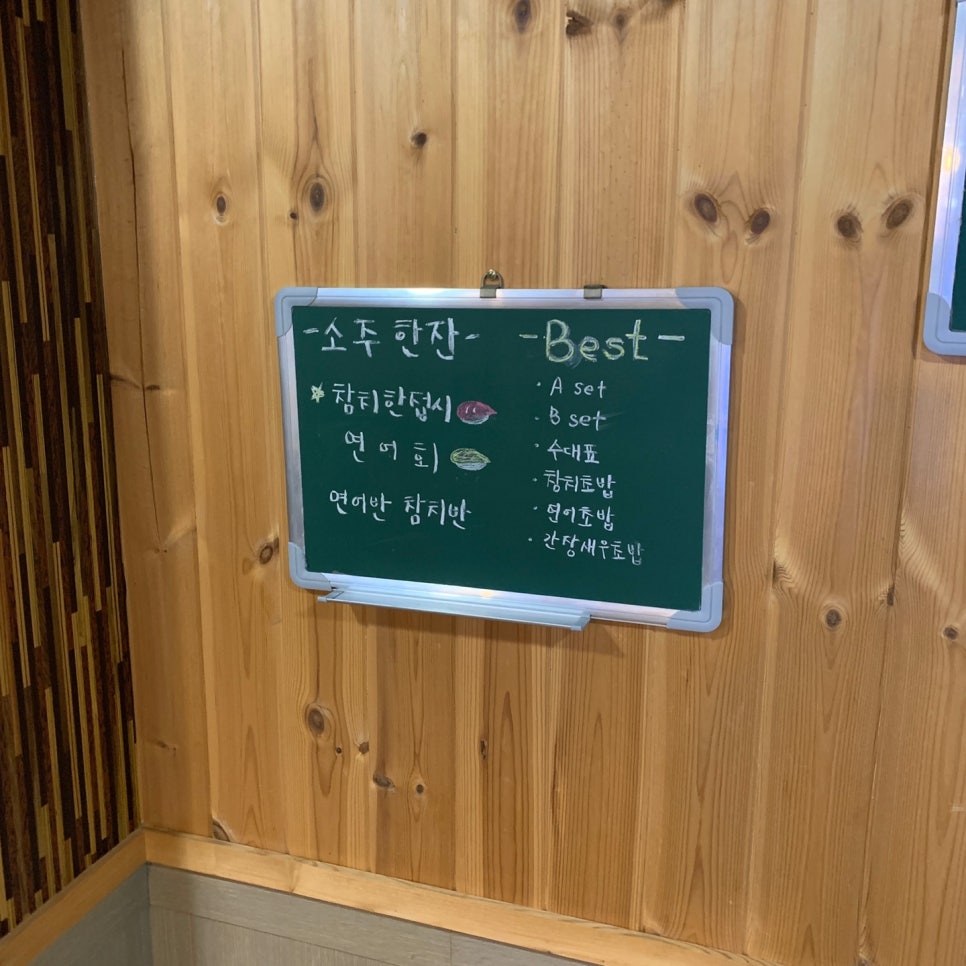 -소주 한잔-
참치한접시
연어회
연어반 참치반
-Best-
· A set
· B set
· 수대표
· 참치초밥
· 연어초밥
· 간장새우초밥